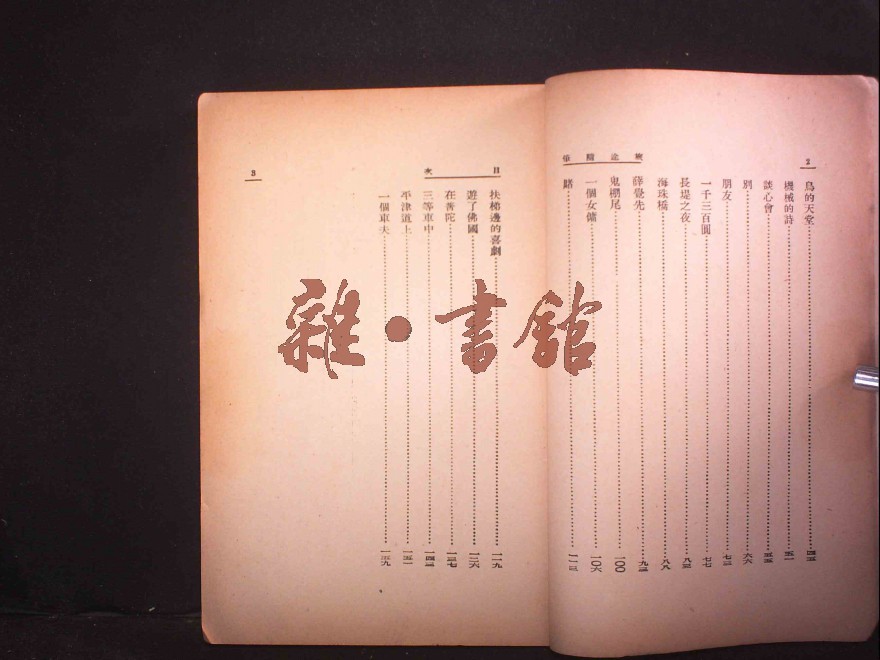 2
旅途隨筆
鳥的天堂 四五
機械的詩 五一
談心會 五五
別 六六
朋友 七三
一千三百圓 七七
長堤之夜 八三
海珠橋 八八
薛覺先 九三
鬼棚尾 一〇〇
一個女傭 一〇六
賭 一一三
目次
3
扶梯邊的喜劇 一一九
遊了佛國 一二六
在普陀 一三七
三等車中 一四三
平津道上 一五一
一個車夫 一五九
雜·書館